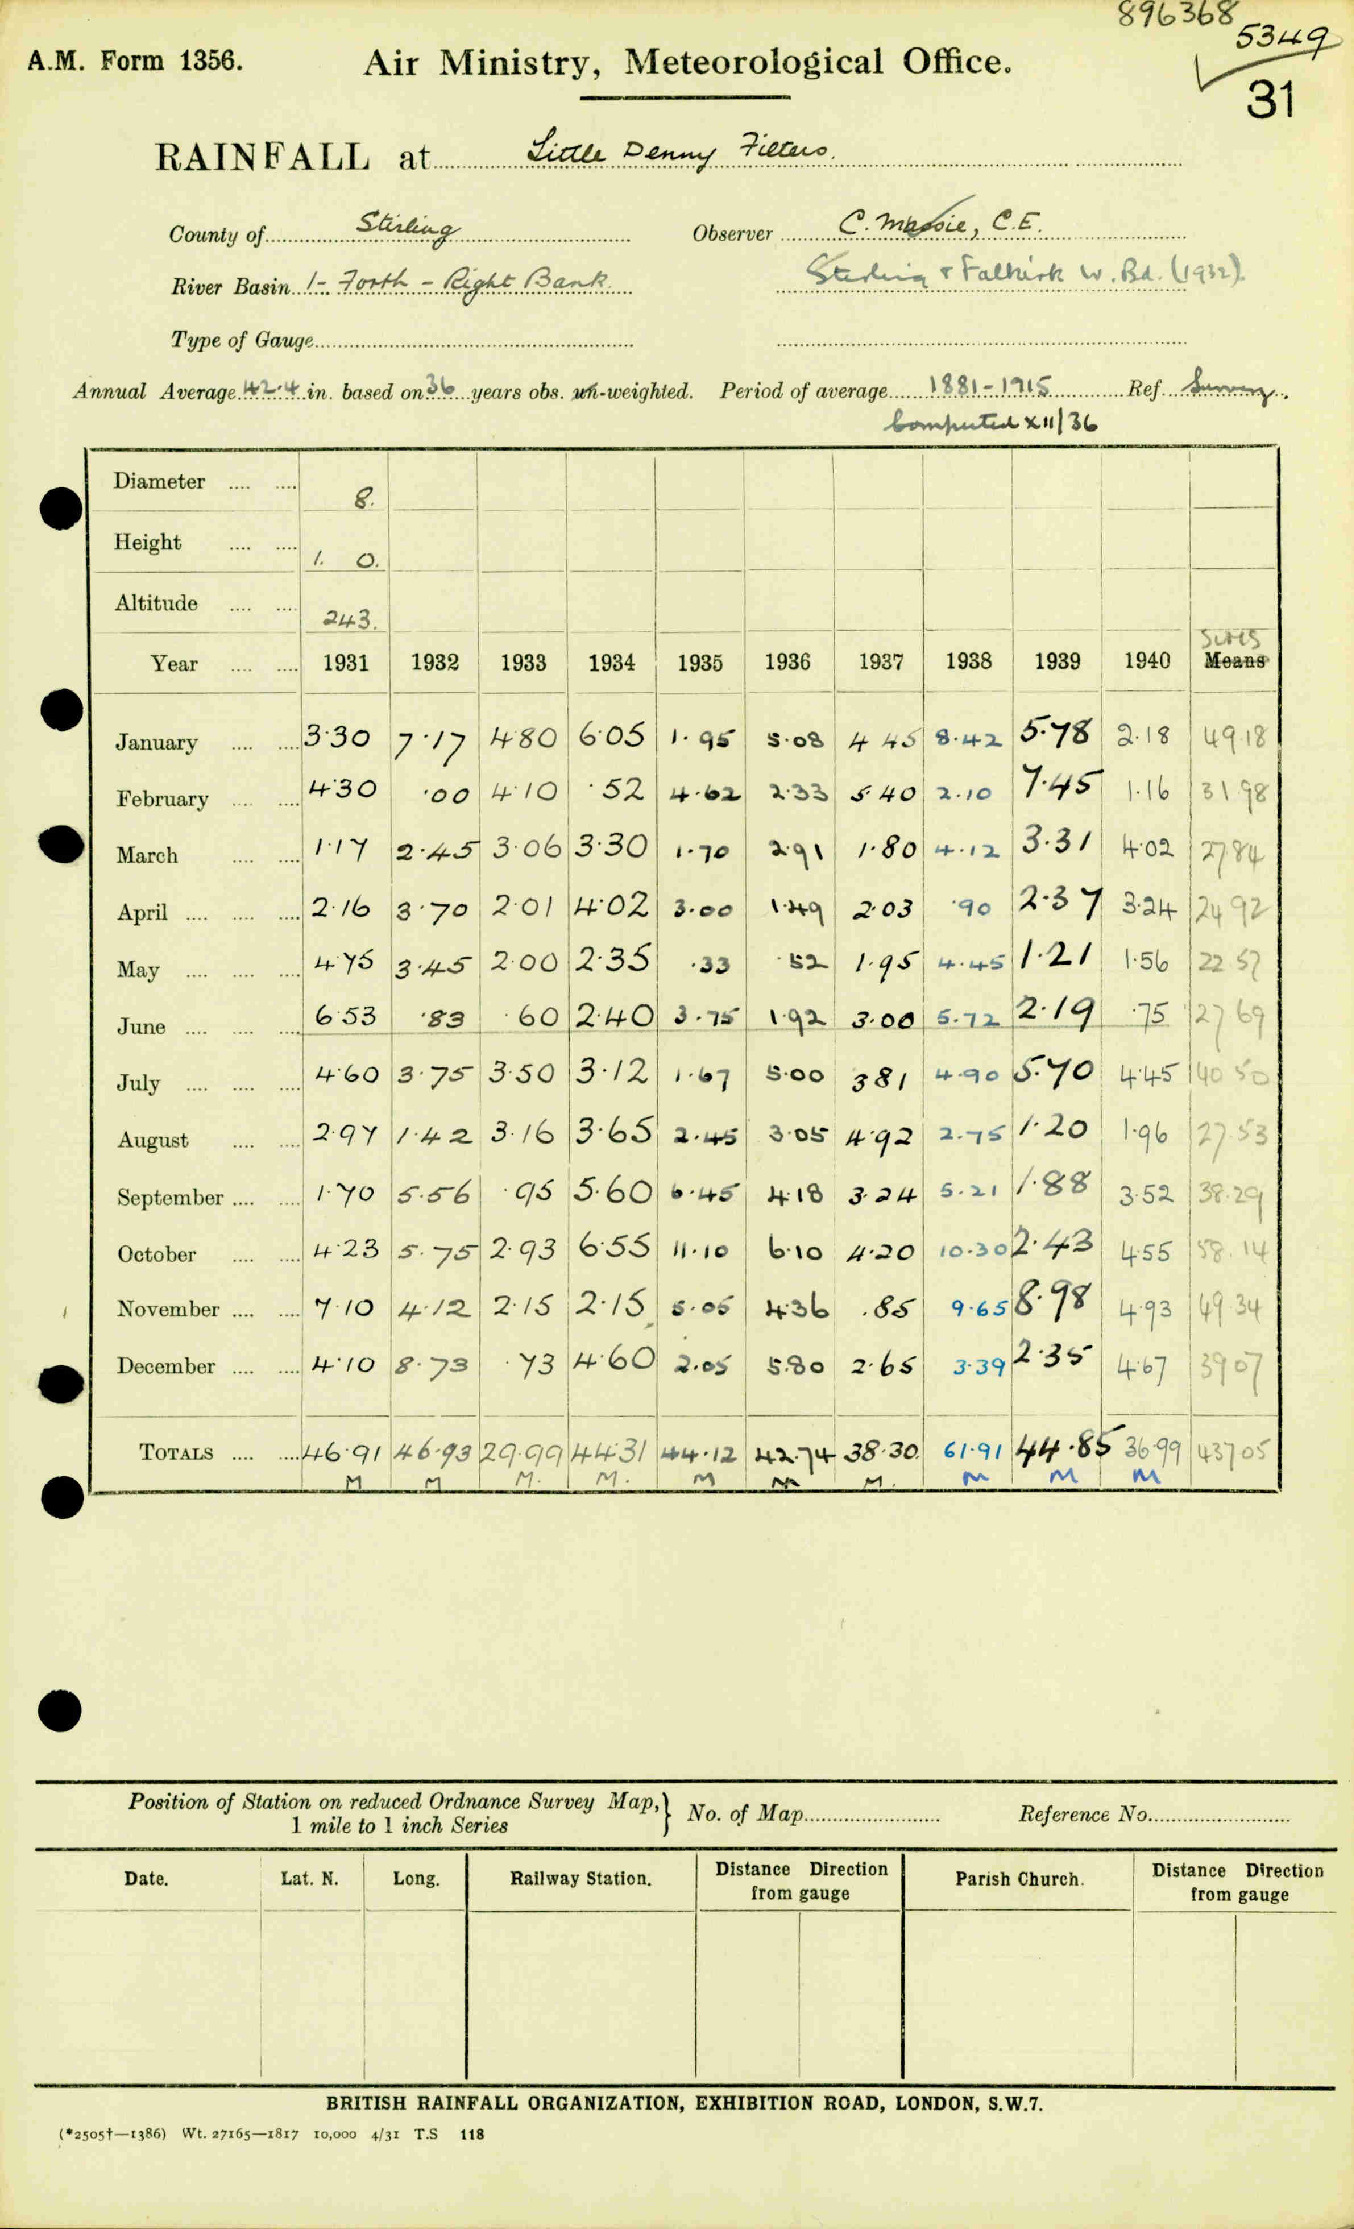 896368
5349
A.M. Form 1356. Air Ministry, Meteorological Office.
31
RAINFALL at Little Denny Filters.
County of Stirling Observer C. Massie, C.E.
River Basin 1- Forth - Right Bank. Stirling & Falkirk W. Bd. (1932).
Type of Gauge
Annual Average 42.4 in. based on 36 years obs. un-weighted. Period of average 1881-1915 Ref. Survey.
Computed XII/36
Diameter .... .... 8.
Height .... .... 1. 0.
Altitude .... .... 243.
Sums
Year .... .... 1931 1932 1933 1934 1935 1936 1937 1938 1939 1940 Means
January .... .... 3.30 7.17 4.80 6.05 1.95 5.08 4.45 8.42 5.78 2.18 49.18
February .... .... 4.30 .00 4.10 .52 4.62 2.33 5.40 2.10 7.45 1.16 31.98
March .... .... 1.17 2.45 3.06 3.30 1.70 2.91 1.80 4.12 3.31 4.02 27.84
April .... .... .... 2.16 3.70 2.01 4.02 3.00 1.49 2.03 .90 2.37 3.24 24.92
May .... .... .... 4.75 3.45 2.00 2.35 .33 .52 1.95 4.45 1.21 1.56 22.57
June .... .... .... 6.53 .83 .60 2.40 3.75 1.92 3.00 5.72 2.19 .75 27.69
July .... .... .... 4.60 3.75 3.50 3.12 1.67 5.00 3.81 4.90 5.70 4.45 40.50
August .... .... 2.97 1.42 3.16 3.65 2.45 3.05 4.92 2.75 1.20 1.96 27.53
September .... .... 1.70 5.56 .95 5.60 6.45 4.18 3.24 5.21 1.88 3.52 38.29
October .... .... 4.23 5.75 2.93 6.55 11.10 6.10 4.20 10.30 2.43 4.55 58.14
November .... .... 7.10 4.12 2.15 2.15 5.05 4.36 .85 9.65 8.98 4.93 49.34
December .... .... 4.10 8.73 .73 4.60 2.05 5.80 2.65 3.39 2.35 4.67 39.07
TOTALS .... .... 46.91 46.93 29.99 44.31 44.12 42.74 38.30 61.91 44.85 36.99 437.05
M M M. M. M M M. M M M
Position of Station on reduced Ordnance Survey Map, } No. of Map Reference No.
1 mile to 1 inch Series
Date. Lat. N. Long. Railway Station. Distance Direction from gauge Parish Church. Distance Direction from gauge
BRITISH RAINFALL ORGANIZATION, EXHIBITION ROAD, LONDON, S.W.7.
(*2505†—1386) Wt. 27165—1817 10,000 4/31 T.S 118